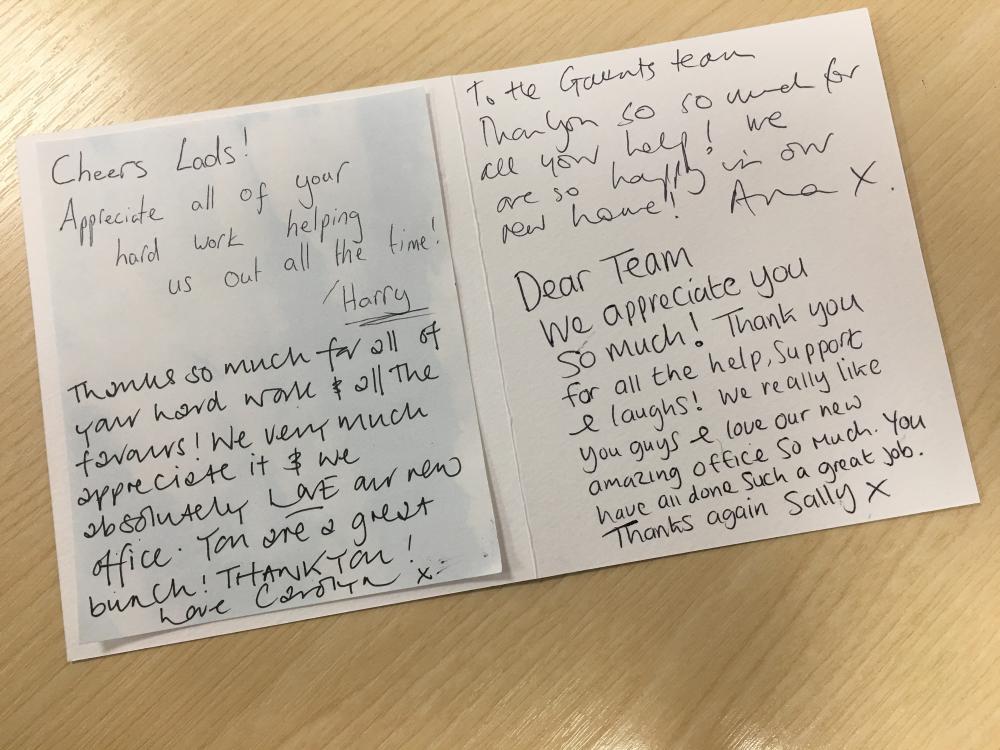 Cheers Lads!
Appreciate all of your
hard work helping
us out all the time!
/Harry
Thanks so much for all of
your hard work & all the
favours! We very much
appreciate it & we
absolutely LOVE our new
office. You are a great
bunch! THANK YOU!
Love Carolyn x
To the Gaunts team
Thankyou so so much for
all your help! We
are so happy in our
new home! Ana X.
Dear Team
We appreciate you
so much! Thank you
for all the help, Support
& laughs! We really like
you guys & love our new
amazing office so much. You
have all done such a great job.
Thanks again Sally X